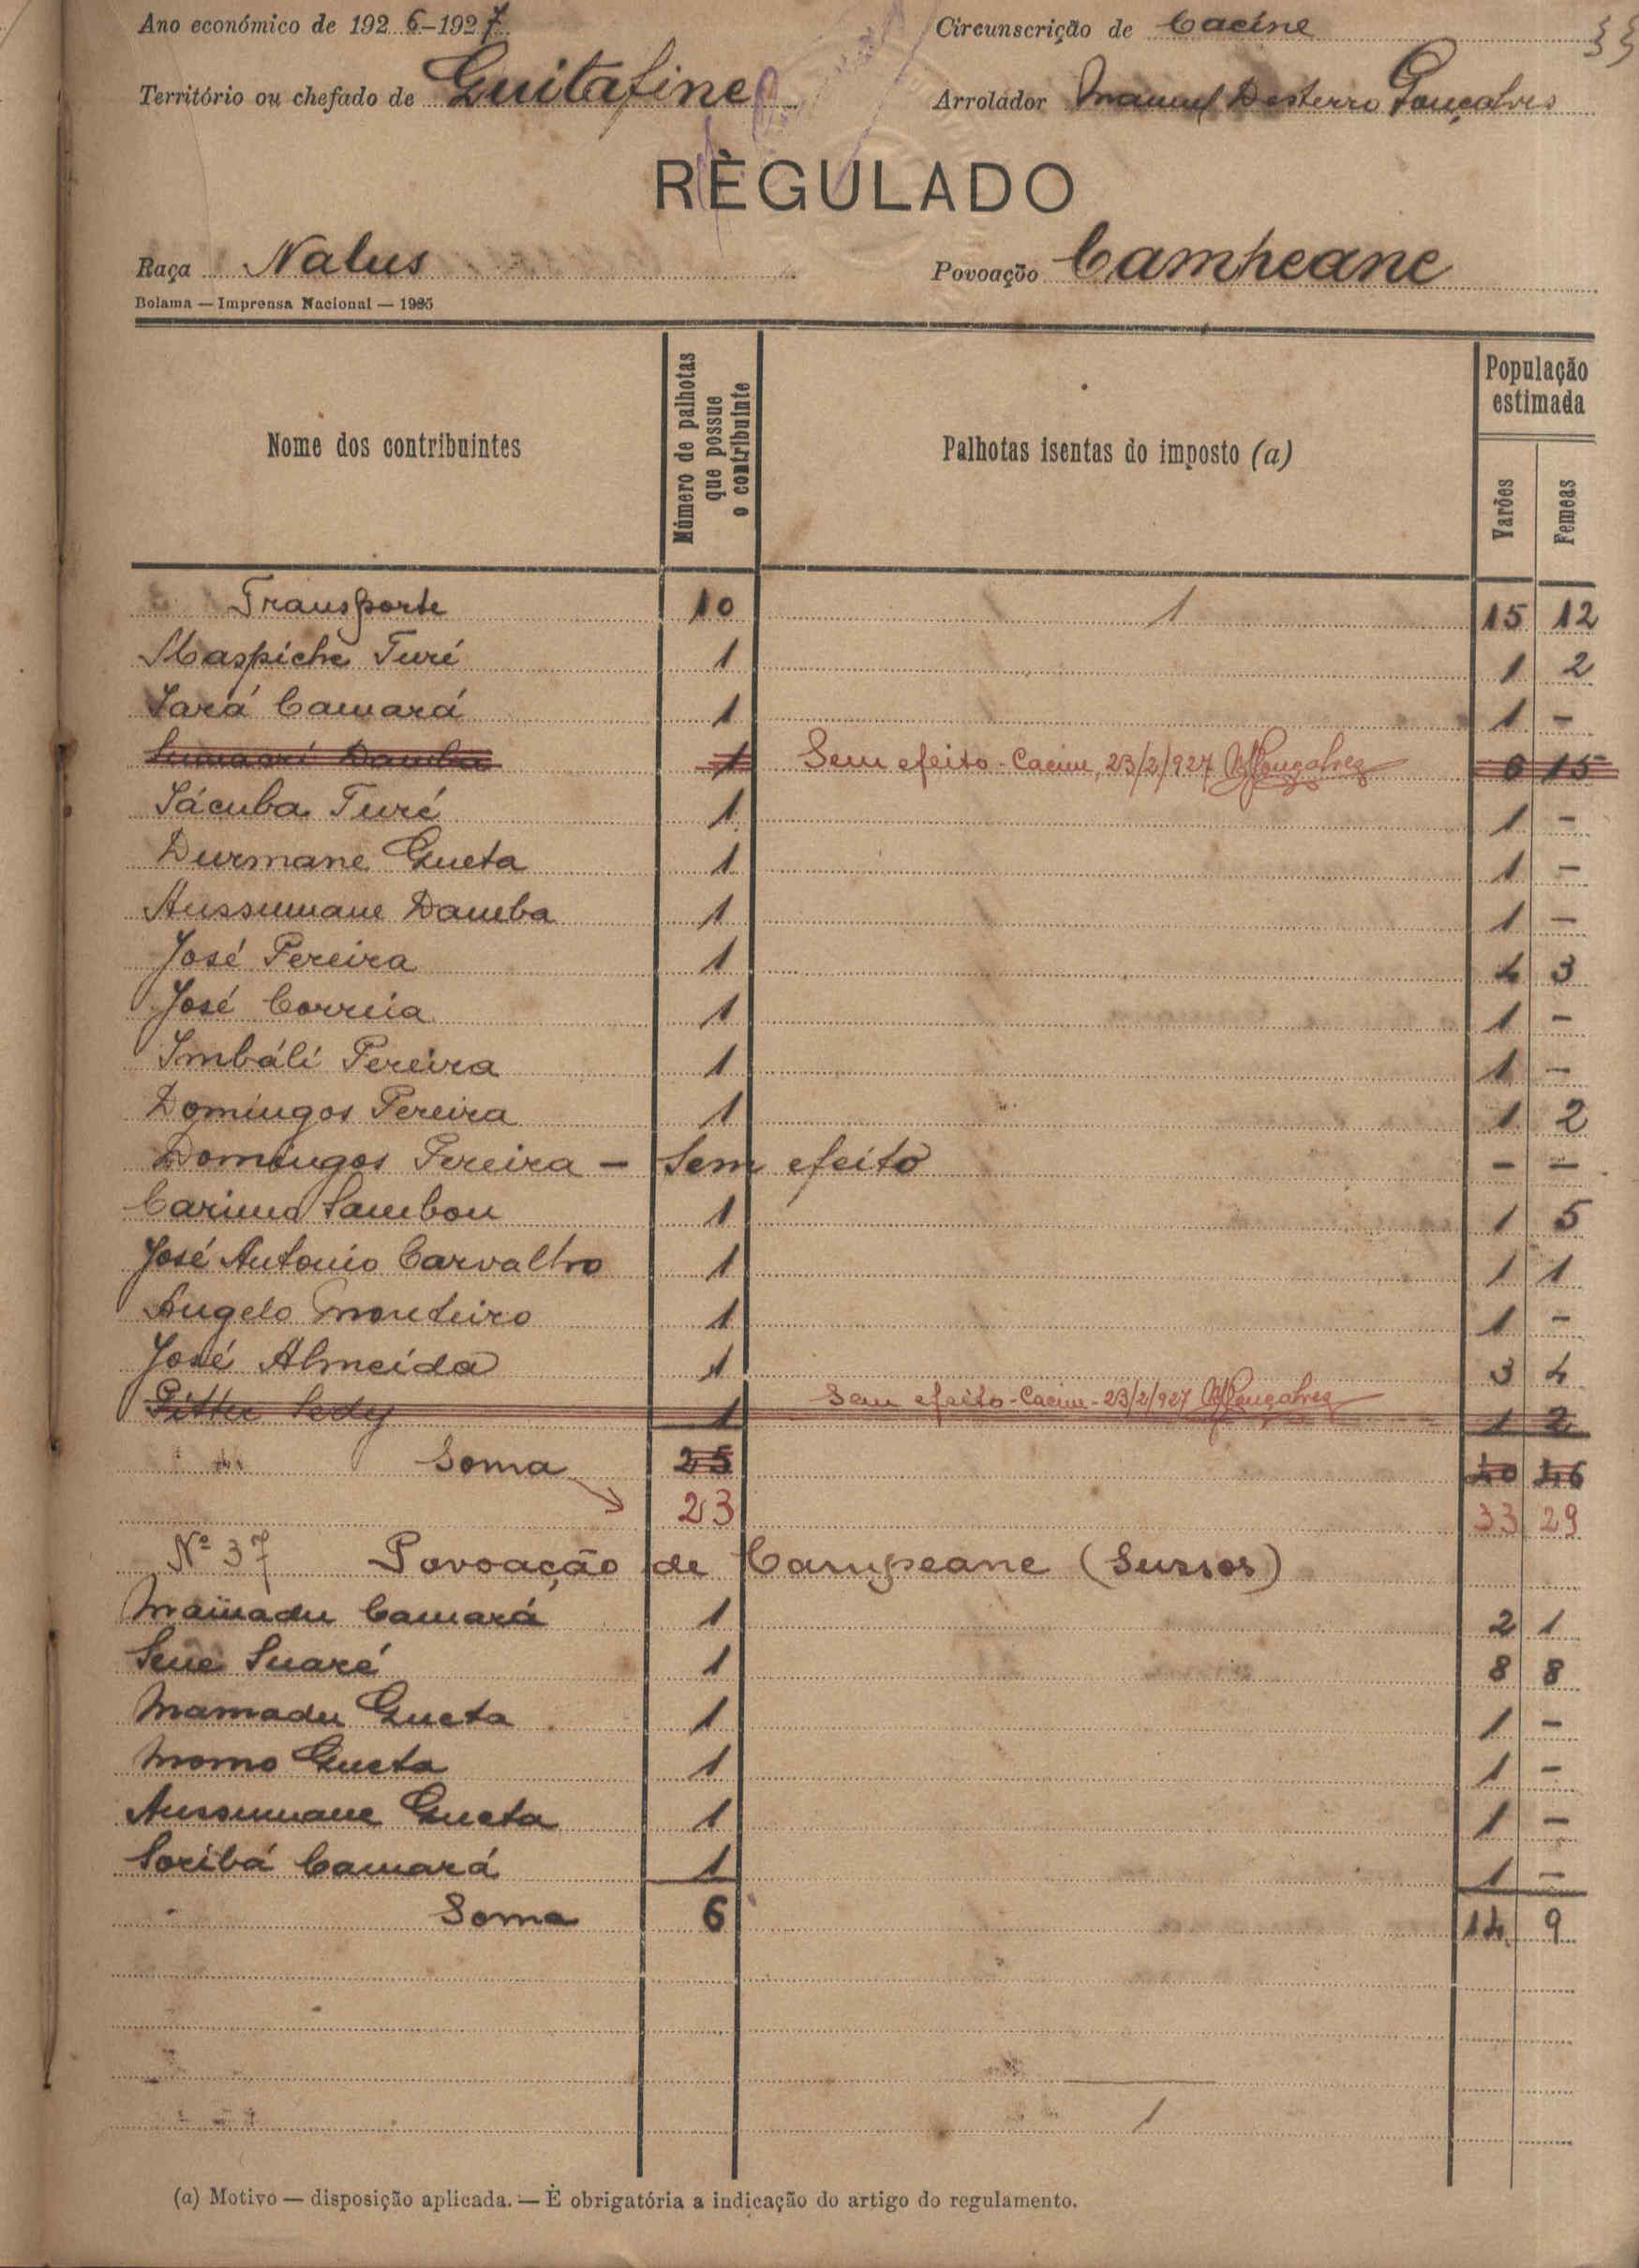 Ano económico de 1926-1927. Circunscrição de Cacine
Território ou chefado de Guitafine Arrolador Manuel Desterro Gonçalves
RÈGULADO
Raça Nalus Povoação Campeane
Bolama — Imprensa Nacional — 1925
Nome dos contribuintes Número de palhotas que possue o contribuinte Palhotas isentas do imposto (a) População estimada Varões Femeas
Transporte 10 1 15 12
Maspiche Turé 1 1 2
Sará Camará 1 1 -
Damba 1 Sem efeito - Cacine, 23/2/927 MGonçalves 6 15
Sácuba Turé 1 1 -
Durmane Gueta 1 1 -
Aussumane Damba 1 1 -
José Pereira 1 4 3
José Correia 1 1 -
Imbáli Pereira 1 1 -
Domingos Pereira 1 1 2
Domingos Pereira - Sem efeito - -
Carimo Sambou 1 1 5
José Antonio Carvalho 1 1 1
Angelo Monteiro 1 1 -
José Almeida 1 3 4
1 Sem efeito - Cacine - 23/2/927 MGonçalves 1 2
Soma 25 40 46
23 33 29
Nº 37 Povoação de Campeane (Sussos)
Mamadu Camará 1 2 1
Sene Suaré 1 8 8
Mamadu Gueta 1 1 -
Momo Gueta 1 1 -
Aussumane Gueta 1 1 -
Soribá Camará 1 1 -
Soma 6 14 9
1
(a) Motivo — disposição aplicada. — È obrigatória a indicação do artigo do regulamento.